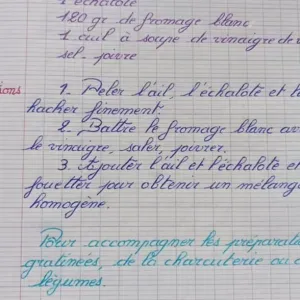 1 échalote
120 gr de fromage blanc
1 cuil à soupe de vinaigre de
sel, poivre
1. Peler l'ail, l'échalote et
hacher finement.
2. Battre le fromage blanc
le vinaigre, saler, poivrer.
3. Ajouter l'ail et l'échalote et
fouetter pour obtenir un mélang
homogène.
Pour accompagner les préparat
gratinées, de la charcuterie ou
légumes.